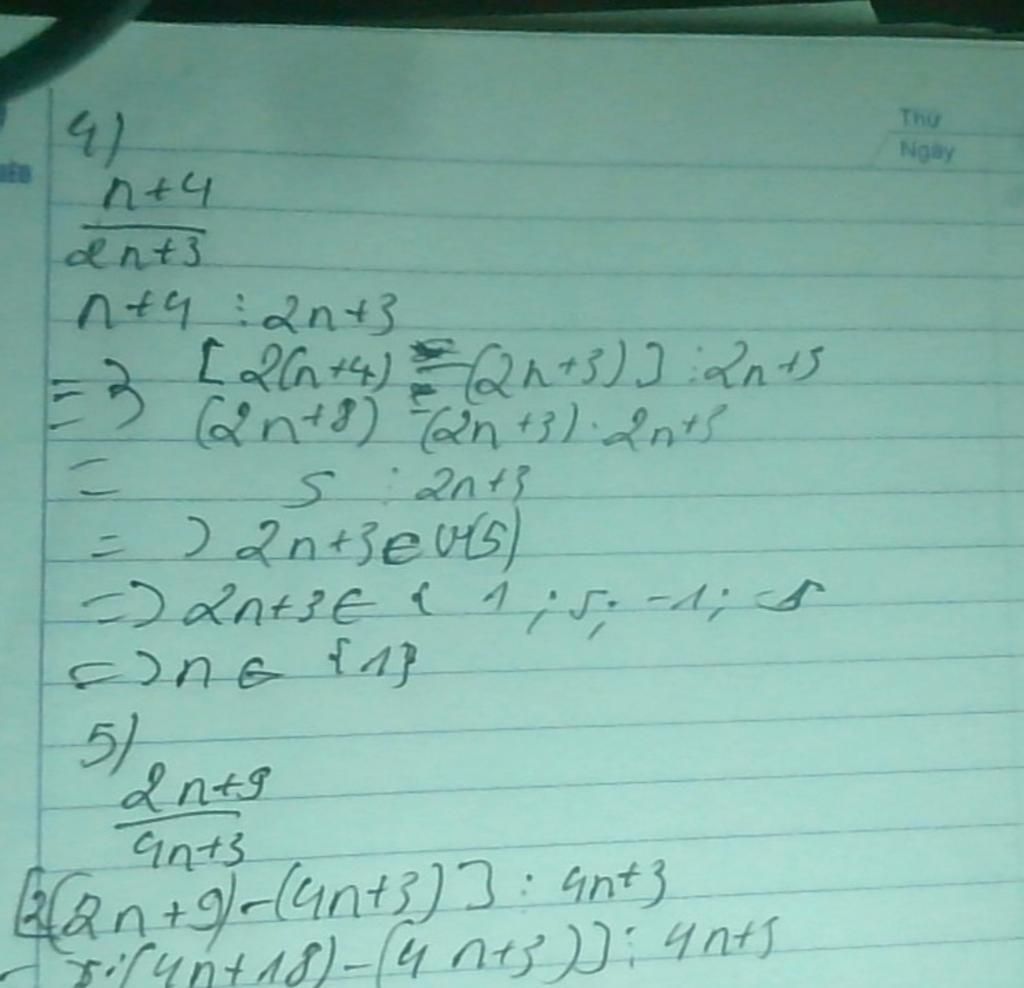 Thứ
Ngày
4)
n+4
2n+3
n+4 ⋮ 2n+3
=> [2(n+4) - (2n+3)] ⋮ 2n+3
(2n+8) - (2n+3) ⋮ 2n+3
= 5 ⋮ 2n+3
=> 2n+3 ∈ Ư(5)
=> 2n+3 ∈ { 1 ; 5; -1; -5
=> n ∈ {1}
5)
2n+9
4n+3
[2(2n+9)-(4n+3)] ⋮ 4n+3
(4n+18)-(4n+3)] ⋮ 4n+3